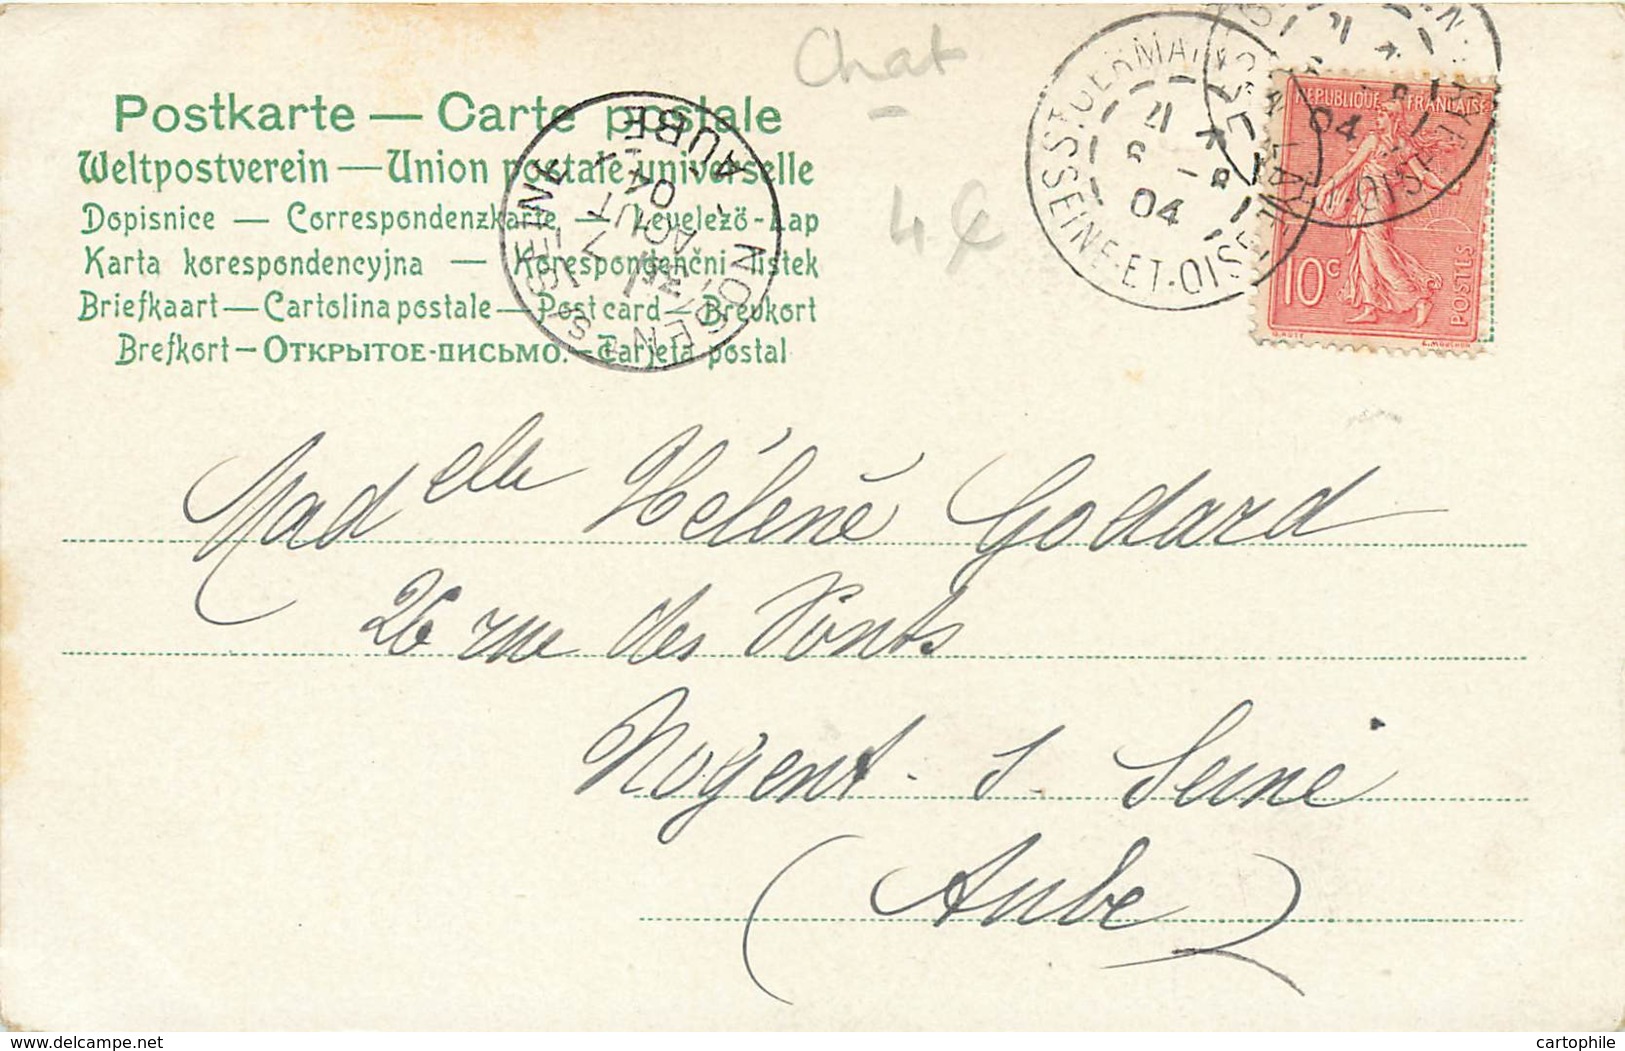 Chat
4€
Postkarte — Carte postale
Weltpostverein — Union postale universelle
Dopisnice — Correspondenzkarte — Levelező-Lap
Karta korespondencyjna — Korespondenční listek
Briefkaart — Cartolina postale — Post card — Brevkort
Brefkort — Открытое-письмо. — Tarjeta postal
NOGENT S/ SEINE
AUBE
7
AOUT
04
ST GERMAIN
SEINE-ET-OISE
04
REPUBLIQUE FRANÇAISE
10c
POSTES
Madelle Hélène Godard
26 rue des Ponts
Nogent - s - Seine
(Aube)
delcampe.net
cartophile